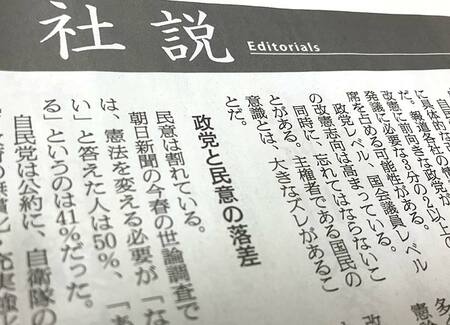 社説
Editorials
に具体的な
だ。報道各社の情
改憲に前向きな政党が
発議に必要な3分の2以上の
席を占める可能性がある。
政党レベル、国会議員レベル
の改憲志向は高まっている。
同時に、忘れてはならないこ
とがある。主権者である国民の
意識とは、大きなズレがあるこ
とだ。
政党と民意の落差
民意は割れている。
朝日新聞の今春の世論調査で
は、憲法を変える必要が「な
い」と答えた人は50%、「あ
る」というのは41%だった。
自民党は公約に、自衛隊の